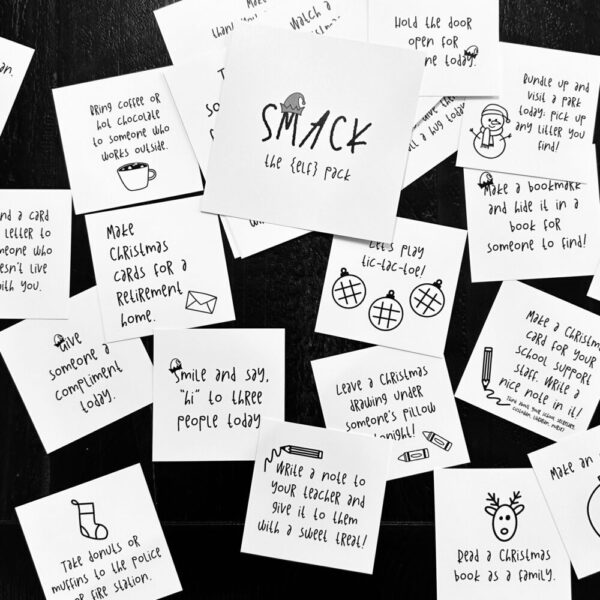 an.
Bring coffee or
hot chocolate
to someone who
works outside.
Make
than
Watch a
Hold the door
open for
ne today.
SMACK
the {elf} pack
give them
all a hug today
Bundle up and
visit a park
today. Pick up
any litter you
find!
nd a card
letter to
meone who
esn't live
with you.
Make
Christmas
cards for a
retirement
home.
wi
Let's play
tic-tac-toe!
Make a bookmark
and hide it in a
book for
someone to find!
Give
someone a
compliment
today.
Smile and say,
"hi" to three
people today
Leave a Christmas
drawing under
someone's pillow
tonight!
Make a Christm
card for your
school support
staff. Write a
nice note in it!
Think about your school secretary,
custodian, librarian, nurse!
Write a note to
your teacher and
give it to them
with a sweet treat!
Make an
Take donuts or
muffins to the police
or fire station.
Read a Christmas
book as a family.